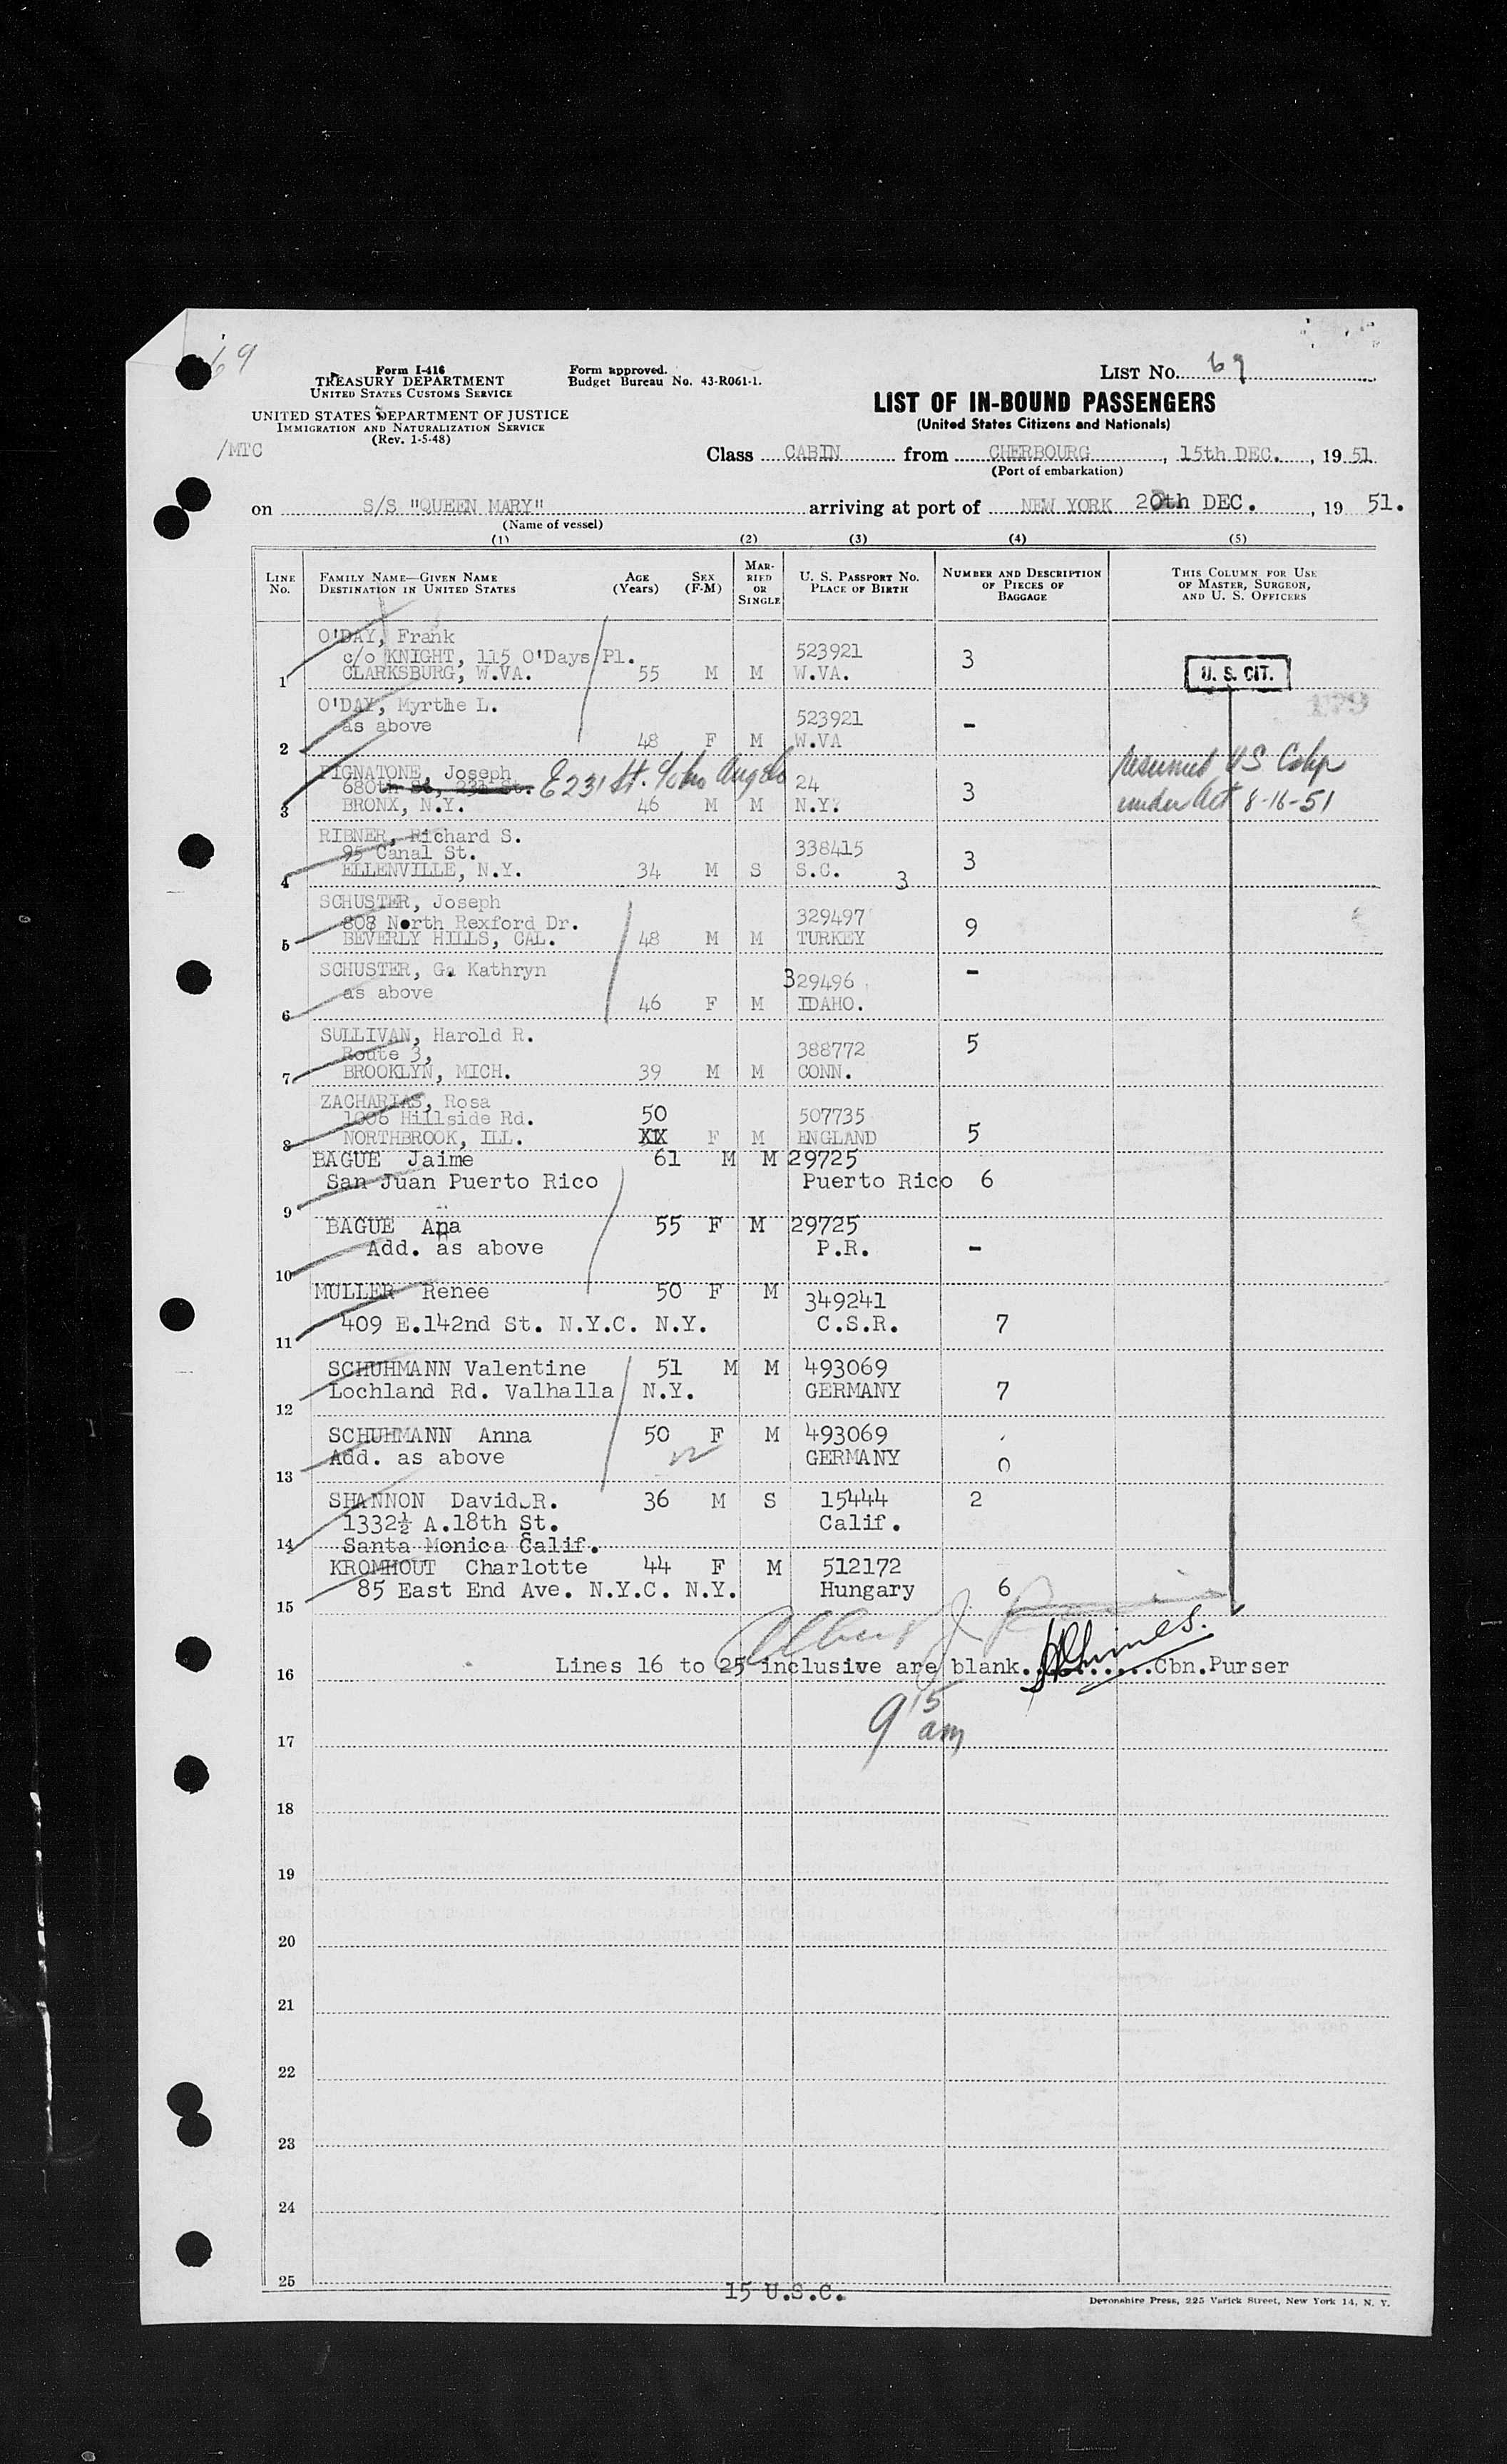 69
Form I-416
TREASURY DEPARTMENT
UNITED STATES CUSTOMS SERVICE
UNITED STATES DEPARTMENT OF JUSTICE
IMMIGRATION AND NATURALIZATION SERVICE
(Rev. 1-5-48)
/MTC
Form approved.
Budget Bureau No. 43-R061-1.
LIST No. 69
LIST OF IN-BOUND PASSENGERS
(United States Citizens and Nationals)
Class CABIN from CHERBOURG, 15th DEC., 19 51
(Port of embarkation)
on S/S "QUEEN MARY" arriving at port of NEW YORK 20th DEC., 19 51.
(Name of vessel)
(1) (2) (3) (4) (5)
LINE No. FAMILY NAME—GIVEN NAME DESTINATION IN UNITED STATES AGE (Years) SEX (F-M) MARRIED OR SINGLE U. S. PASSPORT No. PLACE OF BIRTH NUMBER AND DESCRIPTION OF PIECES OF BAGGAGE THIS COLUMN FOR USE OF MASTER, SURGEON, AND U. S. OFFICERS
O'DAY, Frank
c/o KNIGHT, 115 O'Days Pl. 523921 3
1 CLARKSBURG, W.VA. 55 M M W.VA. U. S. CIT.
O'DAY, Myrthe L. 523921
as above -
2 48 F M W.VA
PIGNATONE, Joseph E 231 St. c/o Angelo resumed U.S.
680th St, 231 St. 24 3
3 BRONX, N.Y. 46 M M N.Y. under Act 8-16-51
RIBNER, Richard S.
95 Canal St. 338415 3
4 ELLENVILLE, N.Y. 34 M S S.C. 3
SCHUSTER, Joseph
808 North Rexford Dr. 329497 9
5 BEVERLY HILLS, CAL. 48 M M TURKEY
SCHUSTER, G. Kathryn 329496 -
as above
6 46 F M IDAHO.
SULLIVAN, Harold R. 5
Route 3, 388772
7 BROOKLYN, MICH. 39 M M CONN.
ZACHARIAS, Rosa
1006 Hillside Rd. 50 507735
8 NORTHBROOK, ILL. XX F M ENGLAND 5
BAGUE Jaime 61 M M 29725
San Juan Puerto Rico Puerto Rico 6
9
BAGUE Ana 55 F M 29725
Add. as above P.R. -
10
MULLER Renee 50 F M 349241
11 409 E.142nd St. N.Y.C. N.Y. C.S.R. 7
SCHUHMANN Valentine 51 M M 493069
Lochland Rd. Valhalla N.Y. GERMANY 7
12
SCHUHMANN Anna 50 F M 493069
Add. as above GERMANY 0
13
SHANNON David R. 36 M S 15444 2
1332½ A.18th St. Calif.
14 Santa Monica Calif.
KROMHOUT Charlotte 44 F M 512172
85 East End Ave. N.Y.C. N.Y. Hungary 6
15
Albert J
16 Lines 16 to 25 inclusive are blank..........Cbn.Purser
9 15 am
17
18
19
20
21
22
23
24
25
15 U.S.C.
Devonshire Press, 225 Varick Street, New York 14, N. Y.